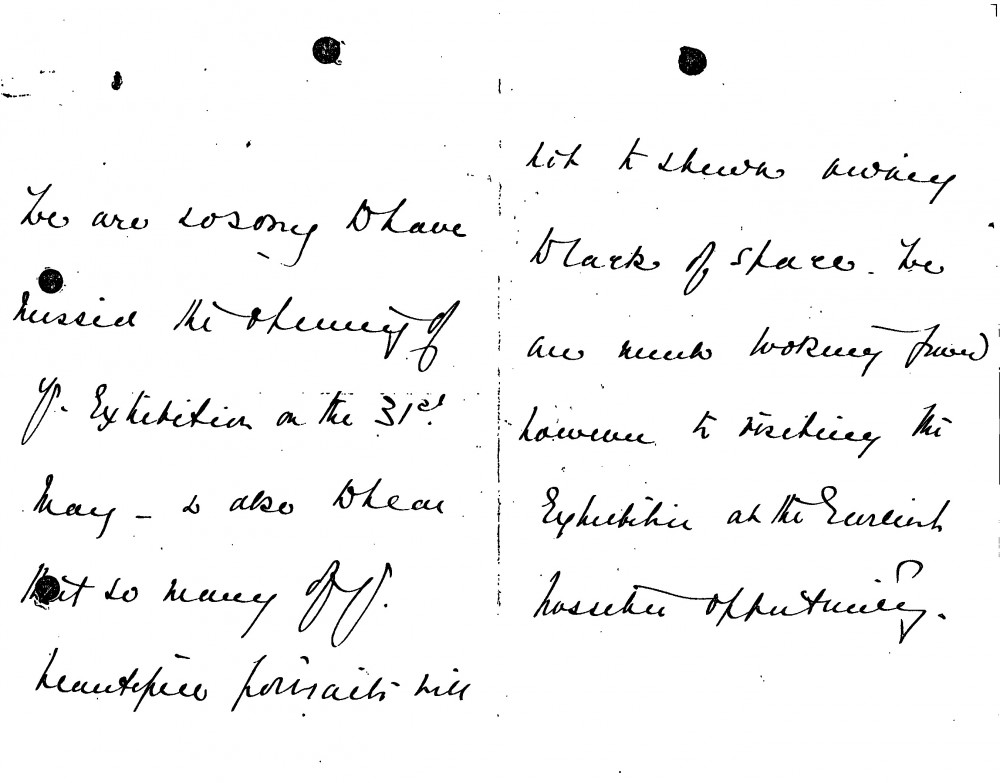 We are so sorry to have
missed the opening of
yr. Exhibition on the 31st
May – & also to hear
that so many of yr.
beautiful portraits will
not be shewn owing
to lack of space. We
are much looking forward
however to visiting the
Exhibition at the Earliest
possible opportunity.